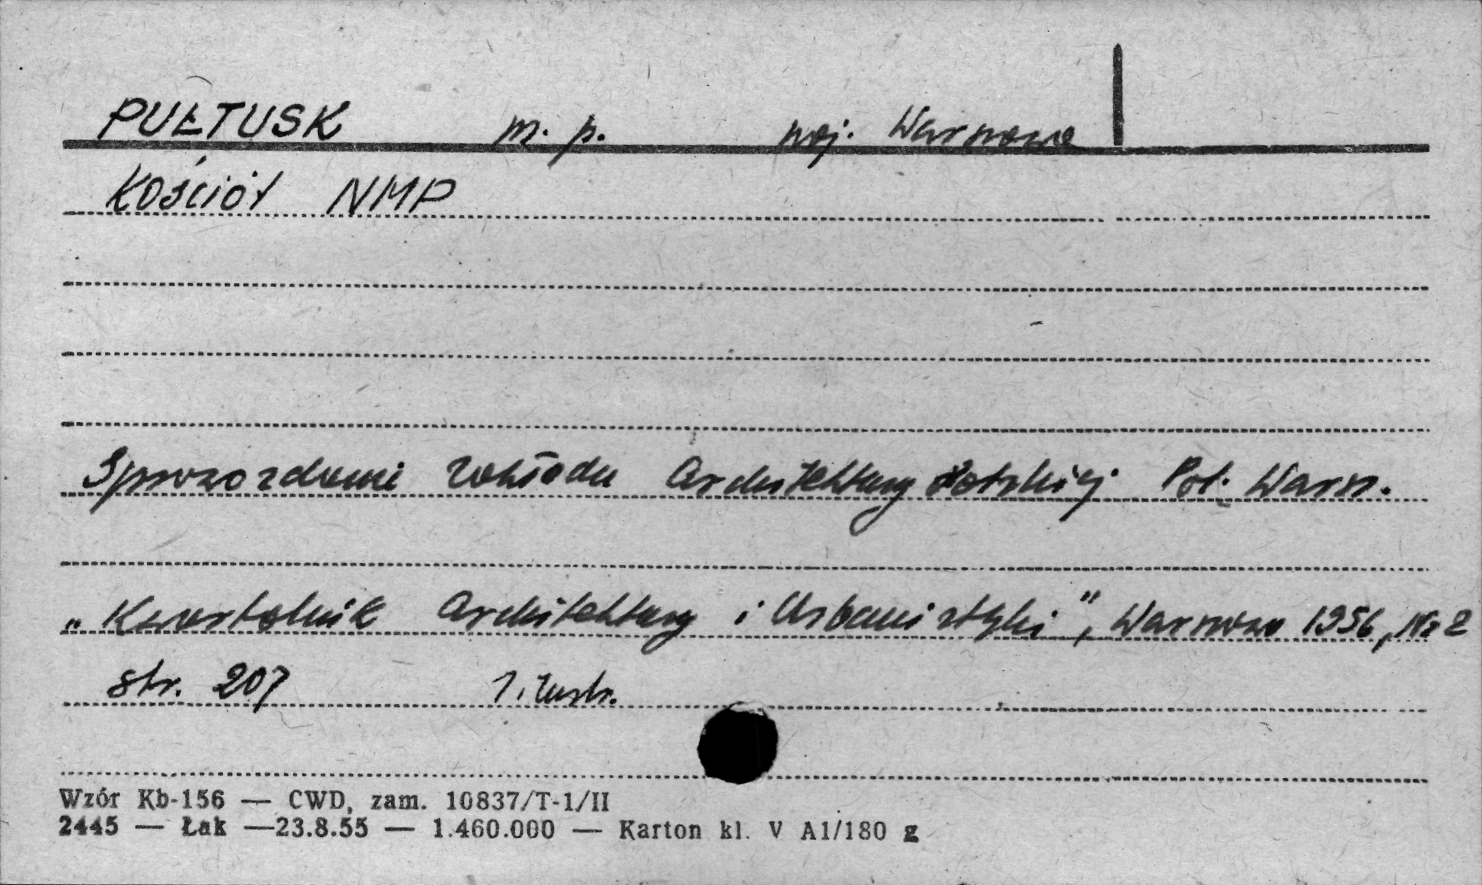 PUŁTUSK m. p. woj. Warszawa
Kościół NMP
Sprawozdanie Zakładu Architektury Polskiej Pol. Warsz.
„Kwartalnik Architektury i Urbanistyki", Warszawa 1956, Nr 2
str. 207 1. ilustr.
Wzór Kb-156 — CWD, zam. 10837/T-1/II
2445 — Łak —23.8.55 — 1.460.000 — Karton kl. V A1/180 g